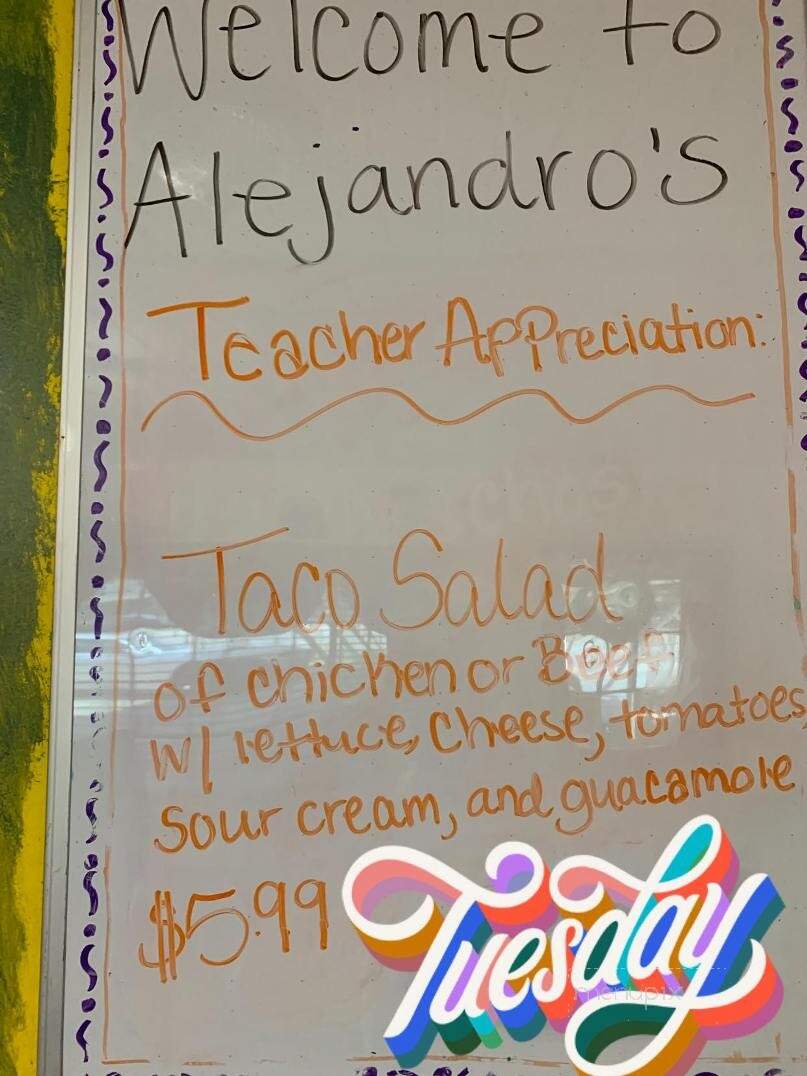 Welcome to
Alejandro's
Teacher Appreciation:
Taco Salad
of chicken or Beef
w/ lettuce, cheese, tomatoes,
sour cream, and guacamole
$5.99
Tuesday
menupix